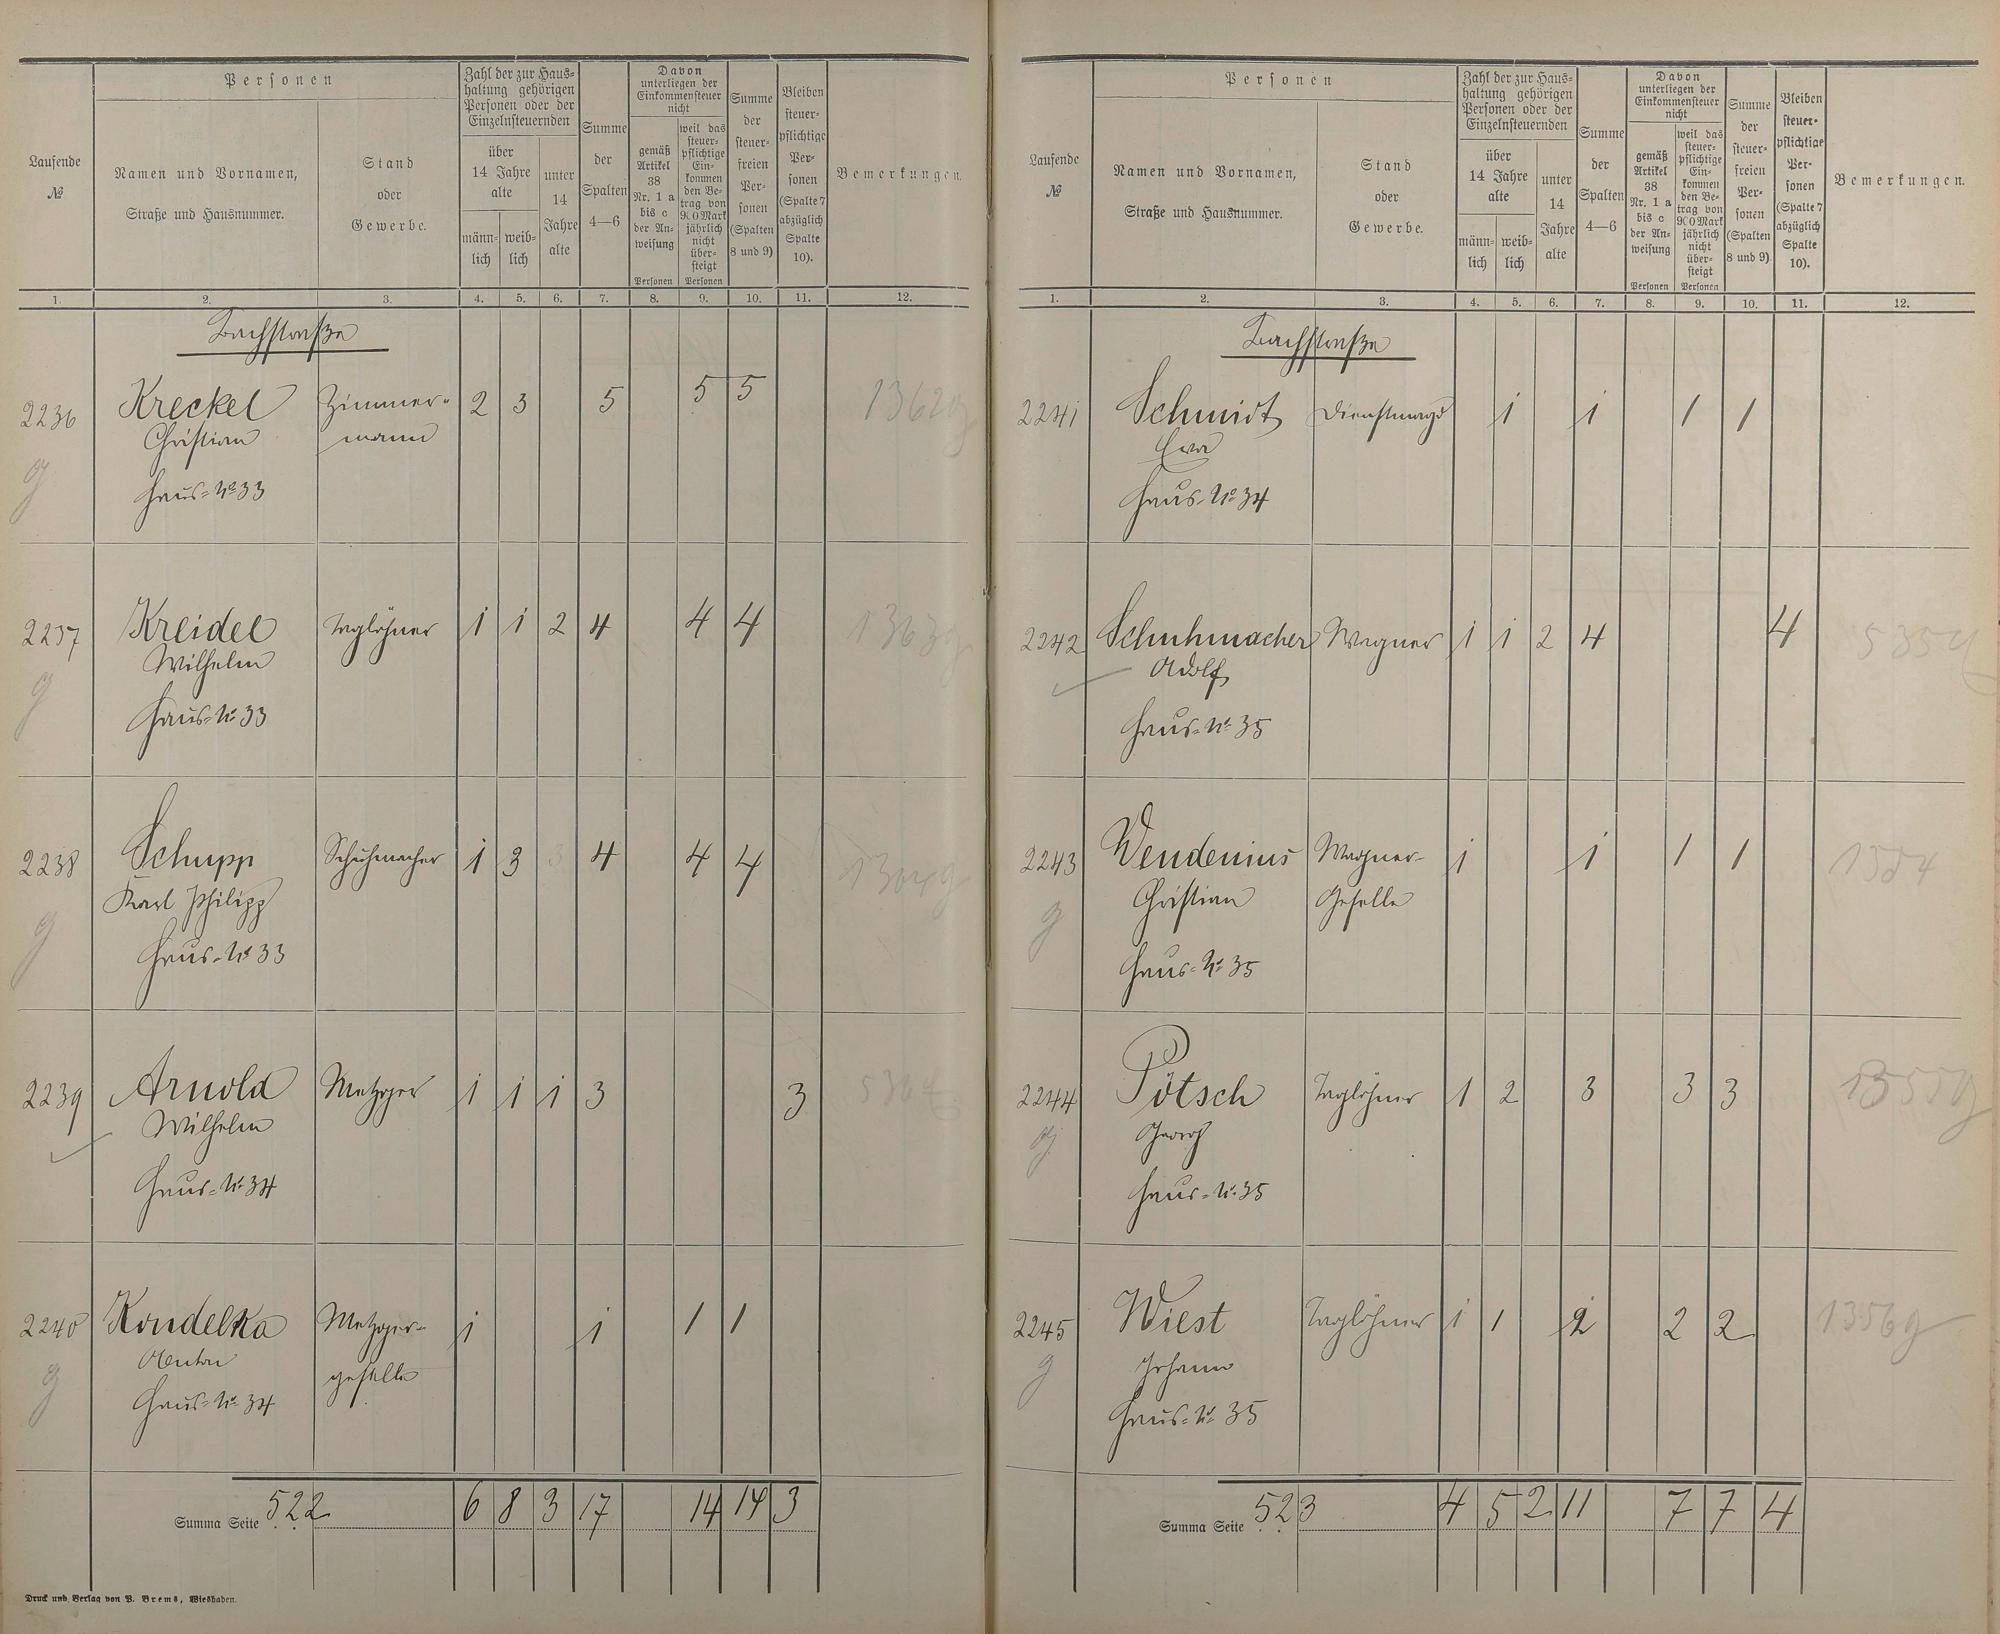 Laufende
№
Personen
Namen und Vornamen,
Straße und Hausnummer.
Stand
oder
Gewerbe.
Zahl der zur Haus-
haltung gehörigen
Personen oder der
Einzelnsteuernden
über
14 Jahre
alte
männ-
lich
weib-
lich
unter
14
Jahre
alte
Summe
der
Spalten
4—6
Davon
unterliegen der
Einkommensteuer
nicht
gemäß
Artikel
38
Nr. 1 a
bis c
der An-
weisung
Personen
weil das
steuer-
pflichtige
Ein-
kommen
den Be-
trag von
900 Mark
jährlich
nicht
über-
steigt
Personen
Summe
der
steuer-
freien
Per-
sonen
(Spalten
8 und 9)
Bleiben
steuer-
pflichtige
Per-
sonen
(Spalte 7
abzüglich
Spalte
10).
Bemerkungen.
1. 2. 3. 4. 5. 6. 7. 8. 9. 10. 11. 12.
Bachstraße
2236 Kreckel Zimmer- 2 3 5 5 5 1362 g
Christian mann
g
Haus-No 33
2237 Kreidel Taglöhner 1 1 2 4 4 4 1363 g
Wilhelm
g
Haus-No 33
2238 Schupp Schuhmacher 1 3 4 4 4
Karl Philipp
g
Haus-No 33
2239 Arnold Metzger 1 1 1 3 3
Wilhelm
Haus-No 34
2240 Koudelka Metzger- 1 1 1 1
Anton geselle
g
Haus-No 34
Summa Seite 522 6 8 3 17 14 14 3
Druck und Verlag von P. Brems, Wiesbaden.
Laufende
№
Personen
Namen und Vornamen,
Straße und Hausnummer.
Stand
oder
Gewerbe.
Zahl der zur Haus-
haltung gehörigen
Personen oder der
Einzelnsteuernden
über
14 Jahre
alte
männ-
lich
weib-
lich
unter
14
Jahre
alte
Summe
der
Spalten
4—6
Davon
unterliegen der
Einkommensteuer
nicht
gemäß
Artikel
38
Nr. 1 a
bis c
der An-
weisung
Personen
weil das
steuer-
pflichtige
Ein-
kommen
den Be-
trag von
900 Mark
jährlich
nicht
über-
steigt
Personen
Summe
der
steuer-
freien
Per-
sonen
(Spalten
8 und 9)
Bleiben
steuer-
pflichtige
Per-
sonen
(Spalte 7
abzüglich
Spalte
10).
Bemerkungen.
1. 2. 3. 4. 5. 6. 7. 8. 9. 10. 11. 12.
Bachstraße
2241 Schmidt Dienstmagd 1 1 1 1
Eva
Haus-No 34
2242 Schuhmacher Wagner 1 1 2 4 4
Adolf
Haus-No 35
2243 Wendenius Wagner- 1 1 1 1
Christian Geselle
g
Haus-No 35
2244 Pötsch Taglöhner 1 2 3 3 3 1355 g
Georg
g
Haus-No 35
2245 Wiest Taglöhner 1 1 2 2 2 1356 g
Johann
g
Haus-No 35
Summa Seite 523 4 5 2 11 7 7 4